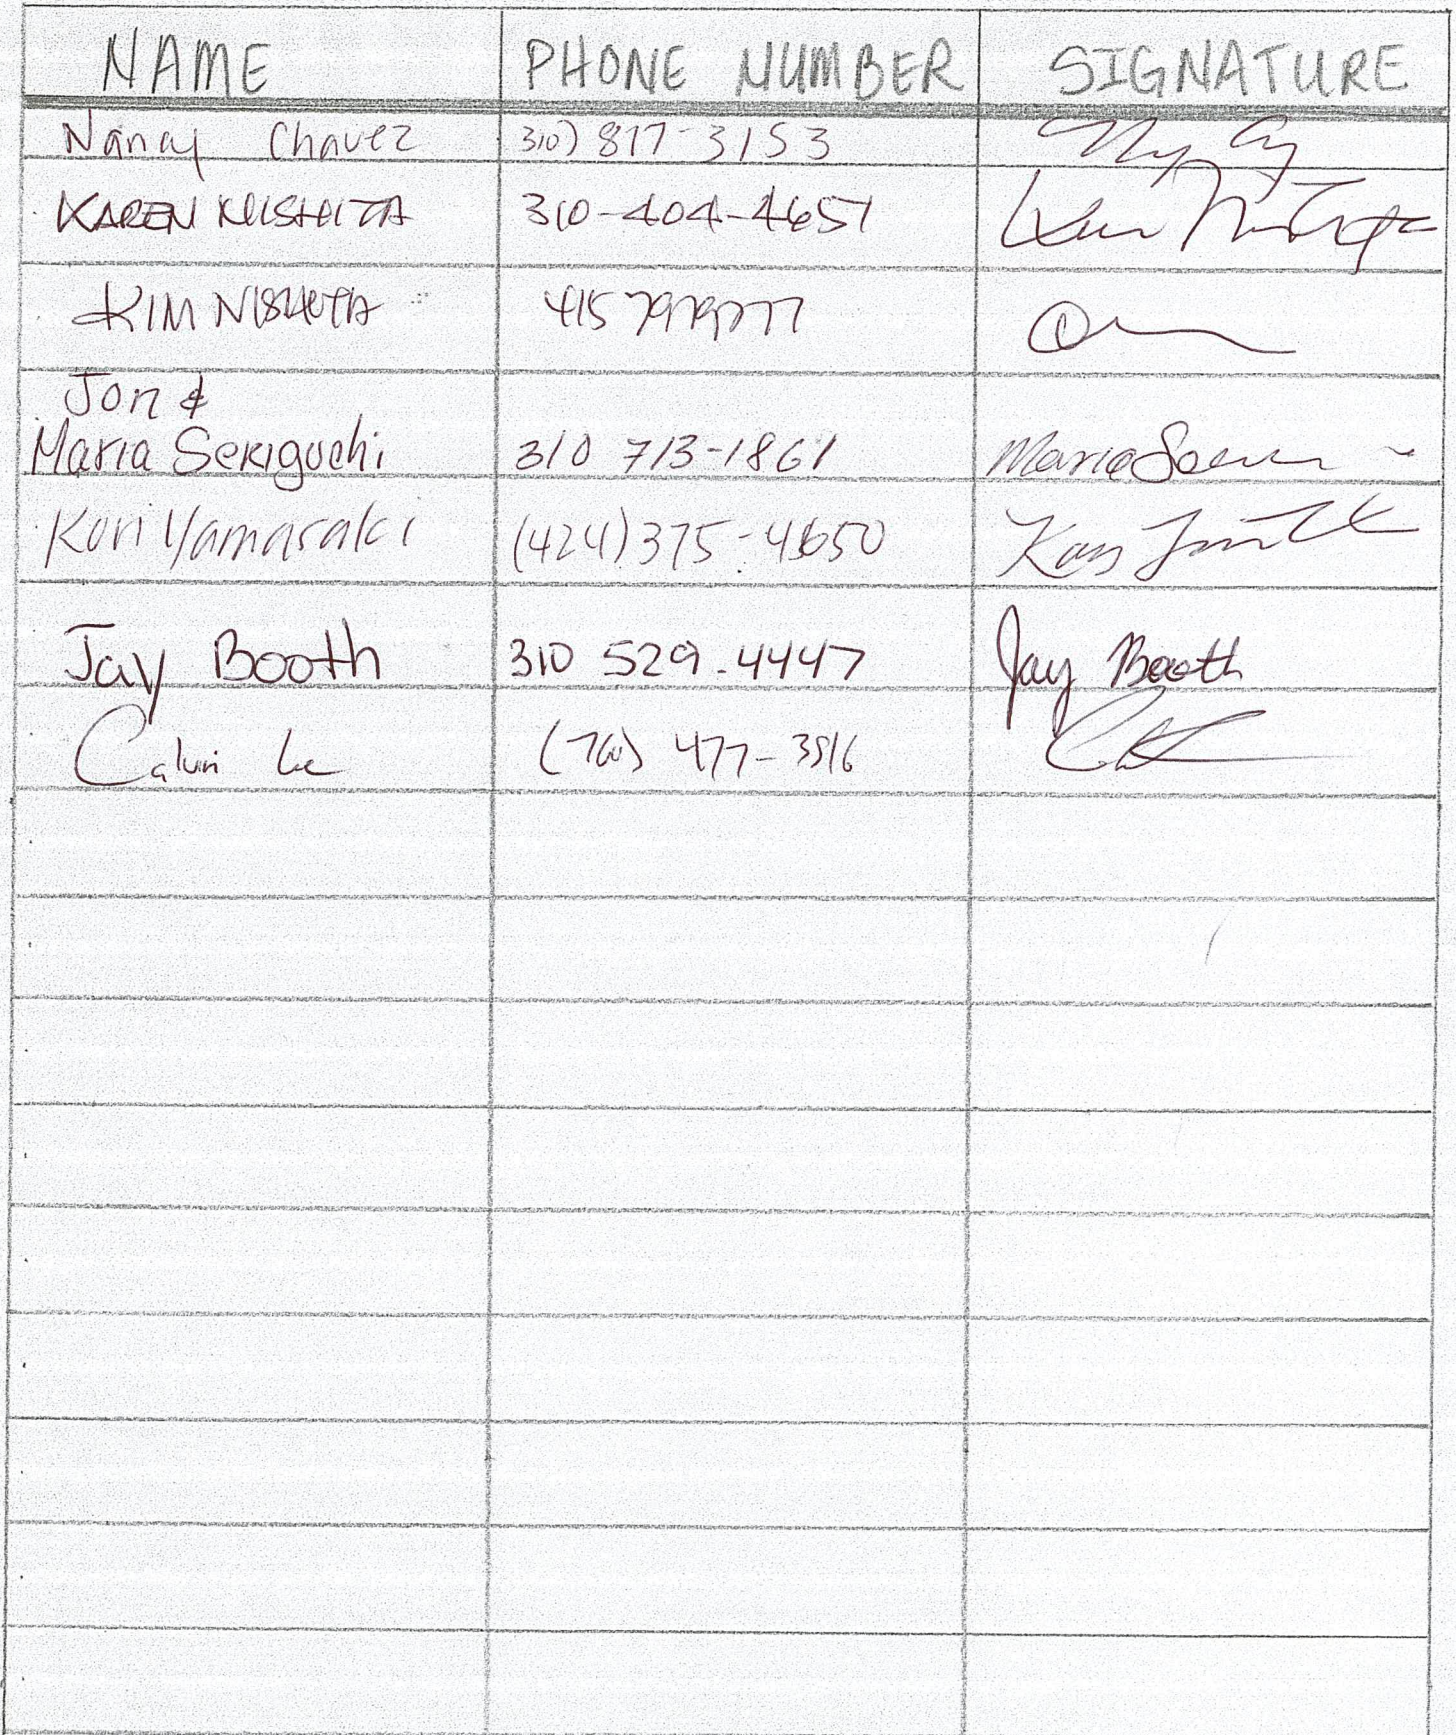 NAME PHONE NUMBER SIGNATURE
Nancy Chavez 310) 877-3153
KAREN NISHITA 310-404-4651
KIM NISHITA 415
Jon &
Maria Sekiguchi 310 713-1861 Maria
Kori Yamasaki (424) 375-4650
Jay Booth 310 529-4447 Jay Booth
Calvin Le (760) 477-3516